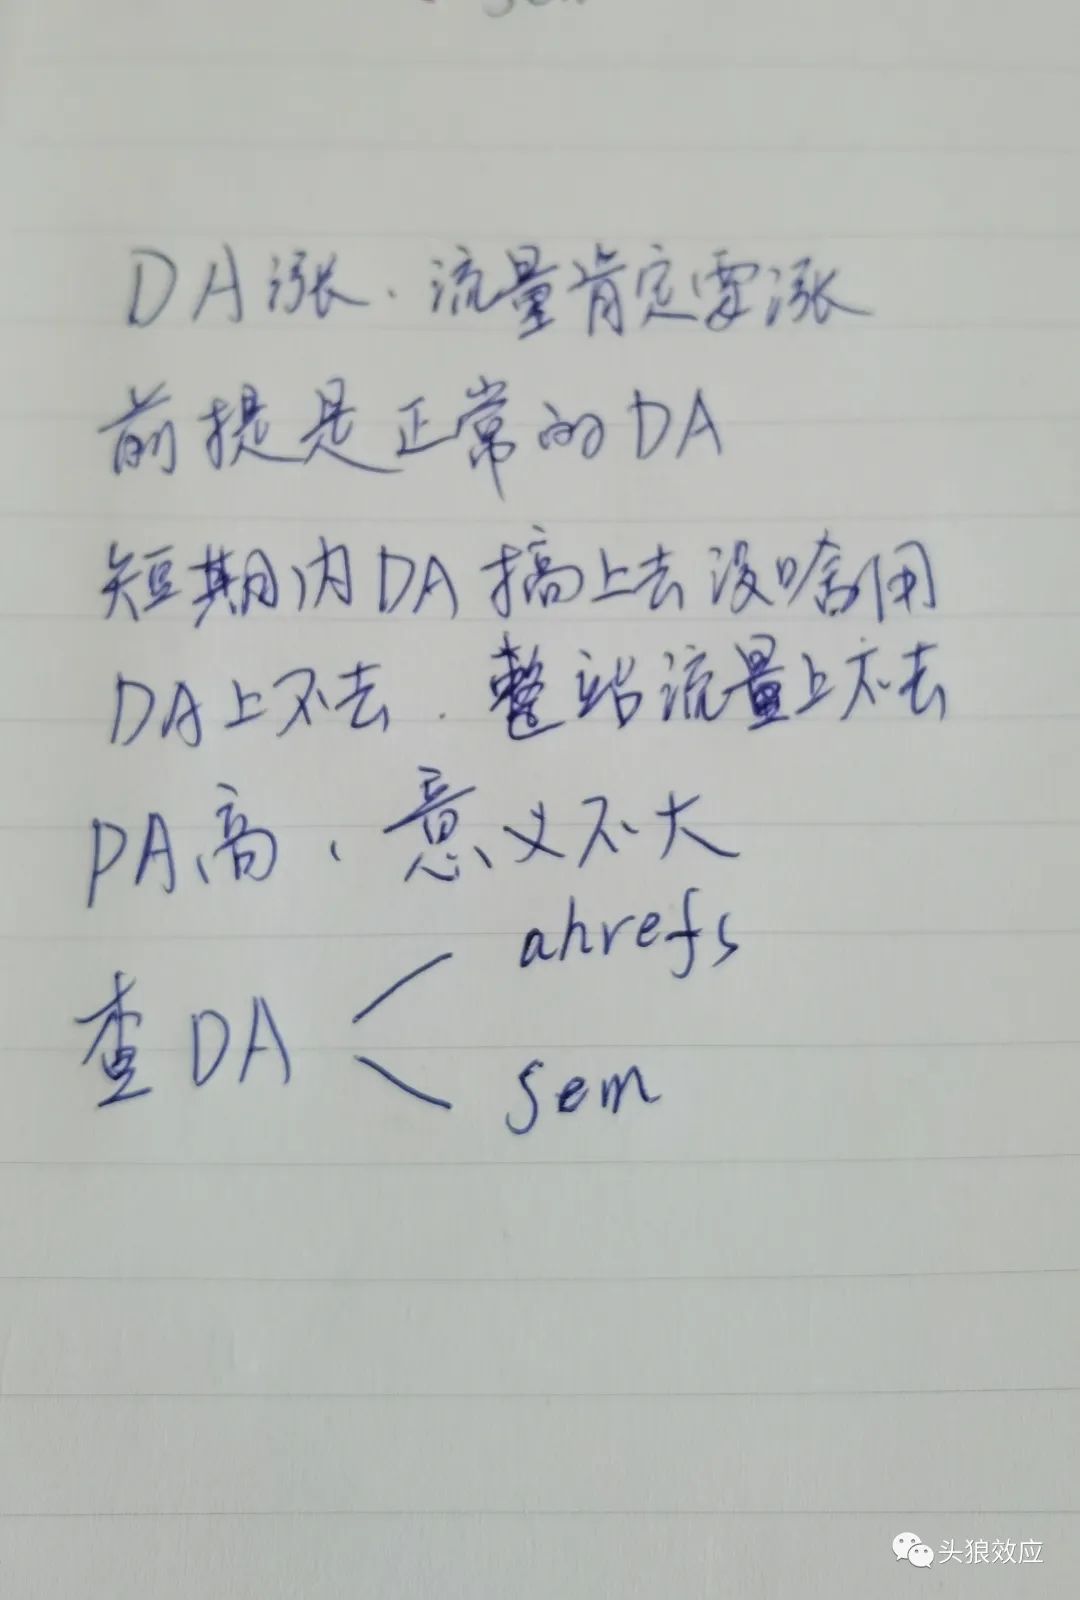 DA涨.流量肯定要涨
前提是正常的DA
短期内DA搞上去没啥用
DA上不去.整站流量上不去
PA高、意义不大
查DA
ahrefs
sem
头狼效应